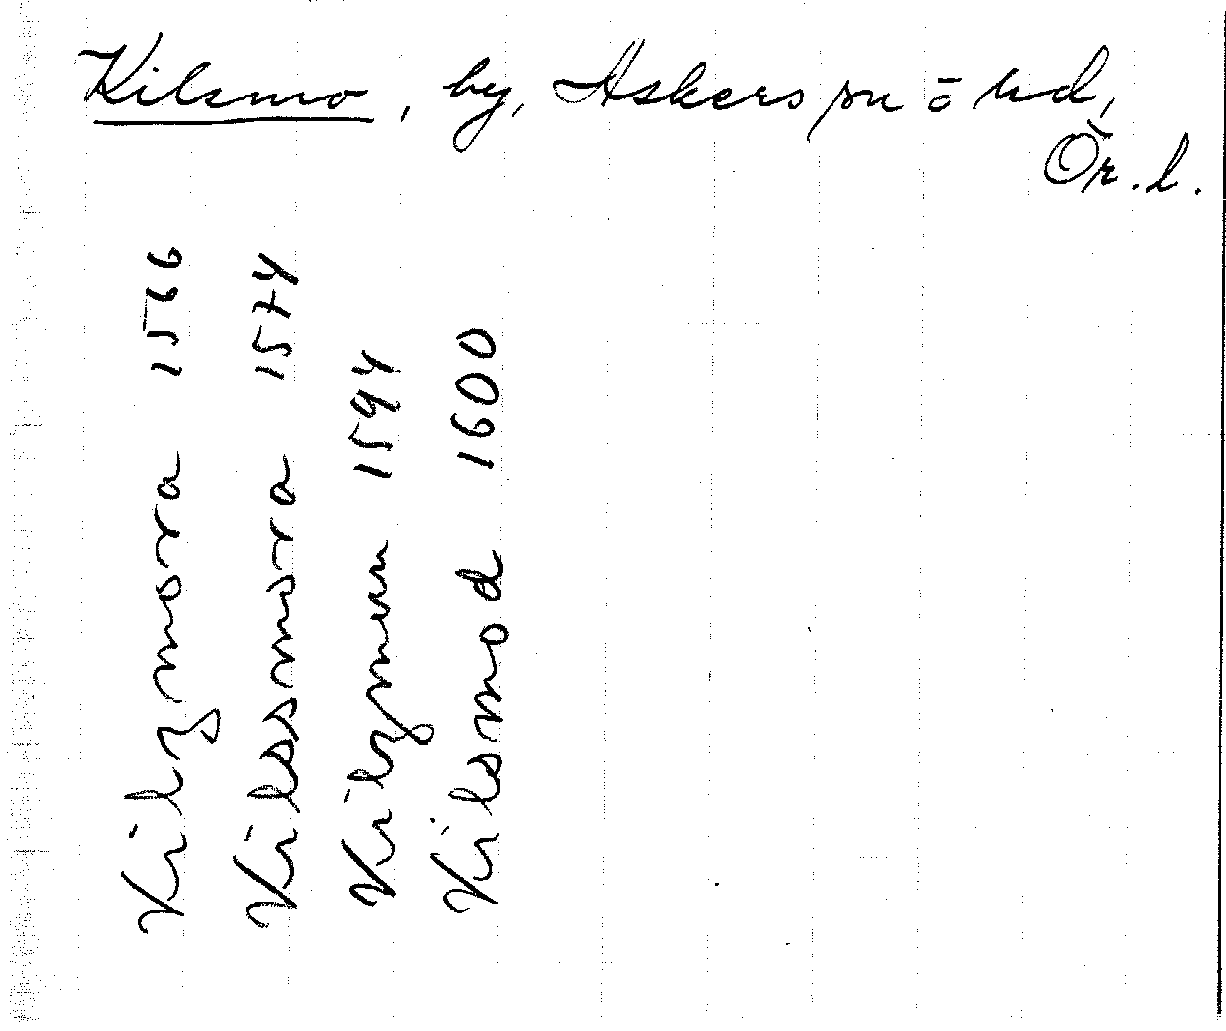 Kilsmo, by, Askers sn ō hd,
Ör. l.
Kilzmora 1566
Kilssmora 1574
1594
Kilsmod 1600